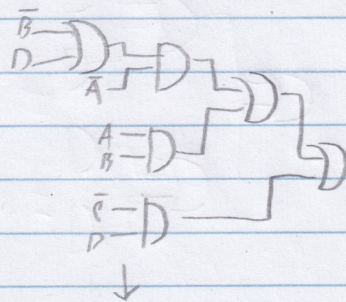 B̅
D
A̅
A
B
C̅
D